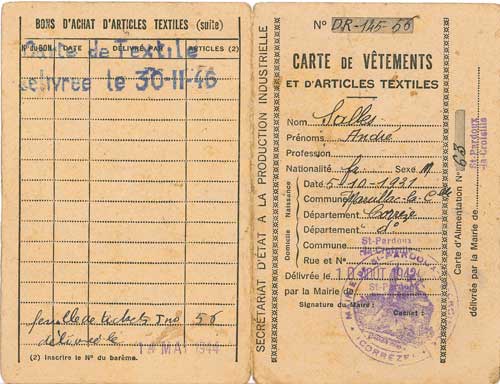 BONS D'ACHAT D'ARTICLES TEXTILES (suite)
N° DU BON DATE DÉLIVRÉ PAR ARTICLES (2)
Carte de Textile
Délivrée le 30-11-46
feuille de textiles 56
délivrée le
MAI 1944
(2) Inscrire le N° du barème.
SECRÉTARIAT D'ÉTAT A LA PRODUCTION INDUSTRIELLE
N° DR-145-56
CARTE DE VÊTEMENTS
ET D'ARTICLES TEXTILES
Nom Salles
Prénoms André
Profession
Nationalité fse Sexe M
Naissance
Date 5-10-1931
Commune Marcillac-la-C
Département Corrèze
Domicile
Département d°
Commune St-Pardoux
la-Croisille
Rue et N°
Délivrée le AOUT 1942
par la Mairie de St-Pardoux
Signature du Maire : Cachet :
MAIRIE ST-PARDOUX
(CORRÈZE)
Carte d'Alimentation N° 63
délivrée par la Mairie de
St-Pardoux
la-Croisille